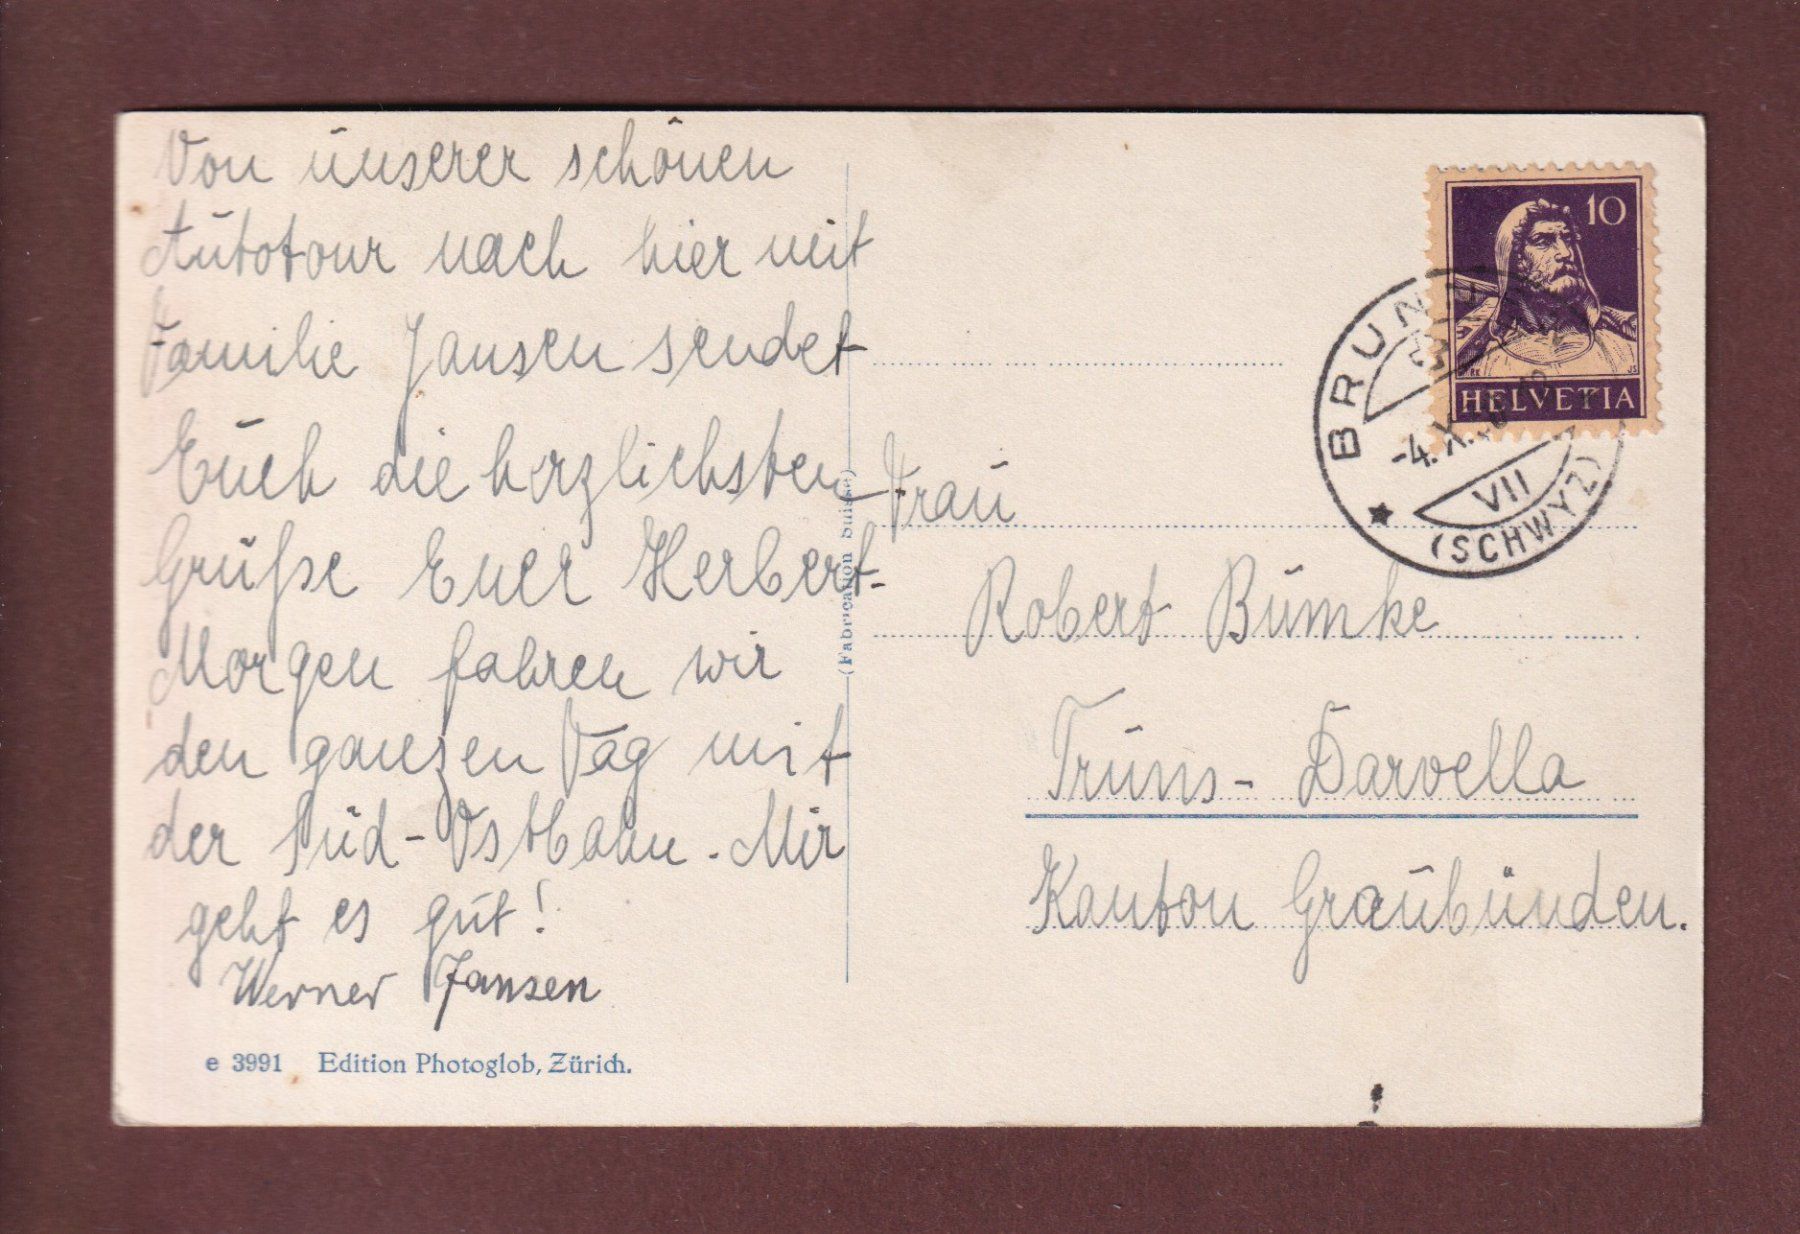 Von unserer schönen
Autotour nach hier mit
Familie Jansen sendet
Euch die herzlichsten
Grüße Euer Herbert.
Morgen fahren wir
den ganzen Tag mit
der Süd-Ostbahn. Mir
geht es gut!
Werner Jansen
e 3991 Edition Photoglob, Zürich.
(Fabrication Suisse)
10
HELVETIA
BRUNNEN
-4.X.
VII
(SCHWYZ)
Frau
Robert Bumke
Truns-Darvella
Kanton Graubünden.